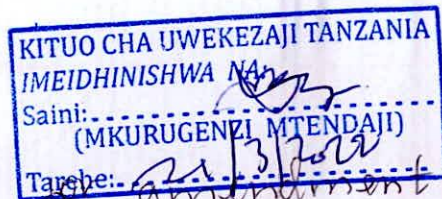 KITUO CHA UWEKEZAJI TANZANIA
IMEIDHINISHWA NA:
Saini:
(MKURUGENZI MTENDAJI)
Tarehe: 21/3/2022
amendment